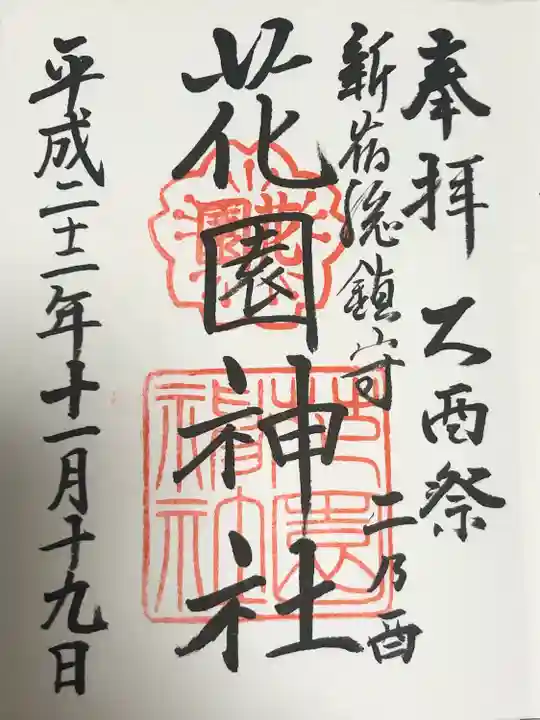 奉拝 大酉祭
新宿総鎮守 二乃酉
花園神社
平成二十二年十一月十九日